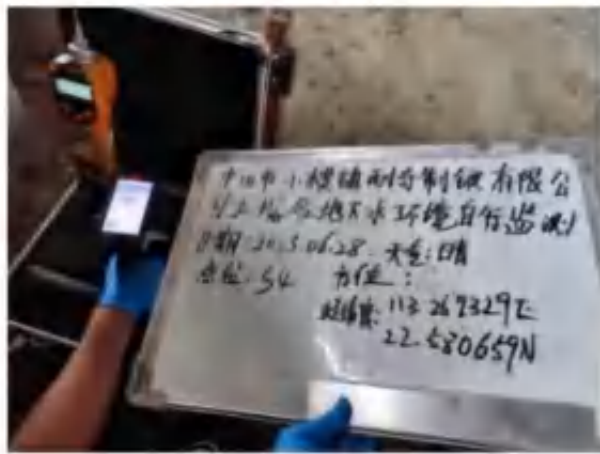 中山市小榄镇耐奇制锁有限公
司土壤及地下水环境自行监测
日期:2023.06.28. 天气:晴
点位:S4 方位:
经纬度:113.267329E
22.580659N